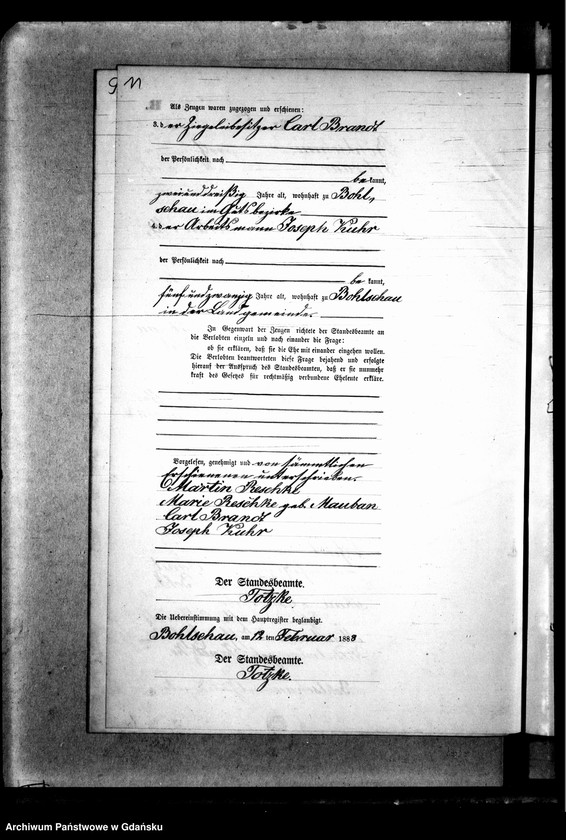 Als Zeugen waren zugezogen und erschienen:
3. der Ziegeleibesitzer Carl Brandt
der Persönlichkeit nach
be kannt,
zweiunddreißig Jahre alt, wohnhaft zu Bohl,
schau im Gutsbezirke
4. der Arbeitsmann Joseph Kuhr
der Persönlichkeit nach
be kannt,
fünfundzwanzig Jahre alt, wohnhaft zu Bohlschau
in der Landgemeinde.
In Gegenwart der Zeugen richtete der Standesbeamte an
die Verlobten einzeln und nach einander die Frage:
ob sie erklären, daß sie die Ehe mit einander eingehen wollen.
Die Verlobten beantworteten diese Frage bejahend und erfolgte
hierauf der Ausspruch des Standesbeamten, daß er sie nunmehr
kraft des Gesetzes für rechtmäßig verbundene Eheleute erkläre.
Vorgelesen, genehmigt und von sämmtlichen
Erschienenen unterschrieben.
Martin Reschke
Marie Reschke geb. Mauban
Carl Brandt
Joseph Kuhr
Der Standesbeamte.
Totzke.
Die Uebereinstimmung mit dem Hauptregister beglaubigt.
Bohlschau, am 12 ten Februar 1883
Der Standesbeamte.
Totzke.
Archiwum Państwowe w Gdańsku